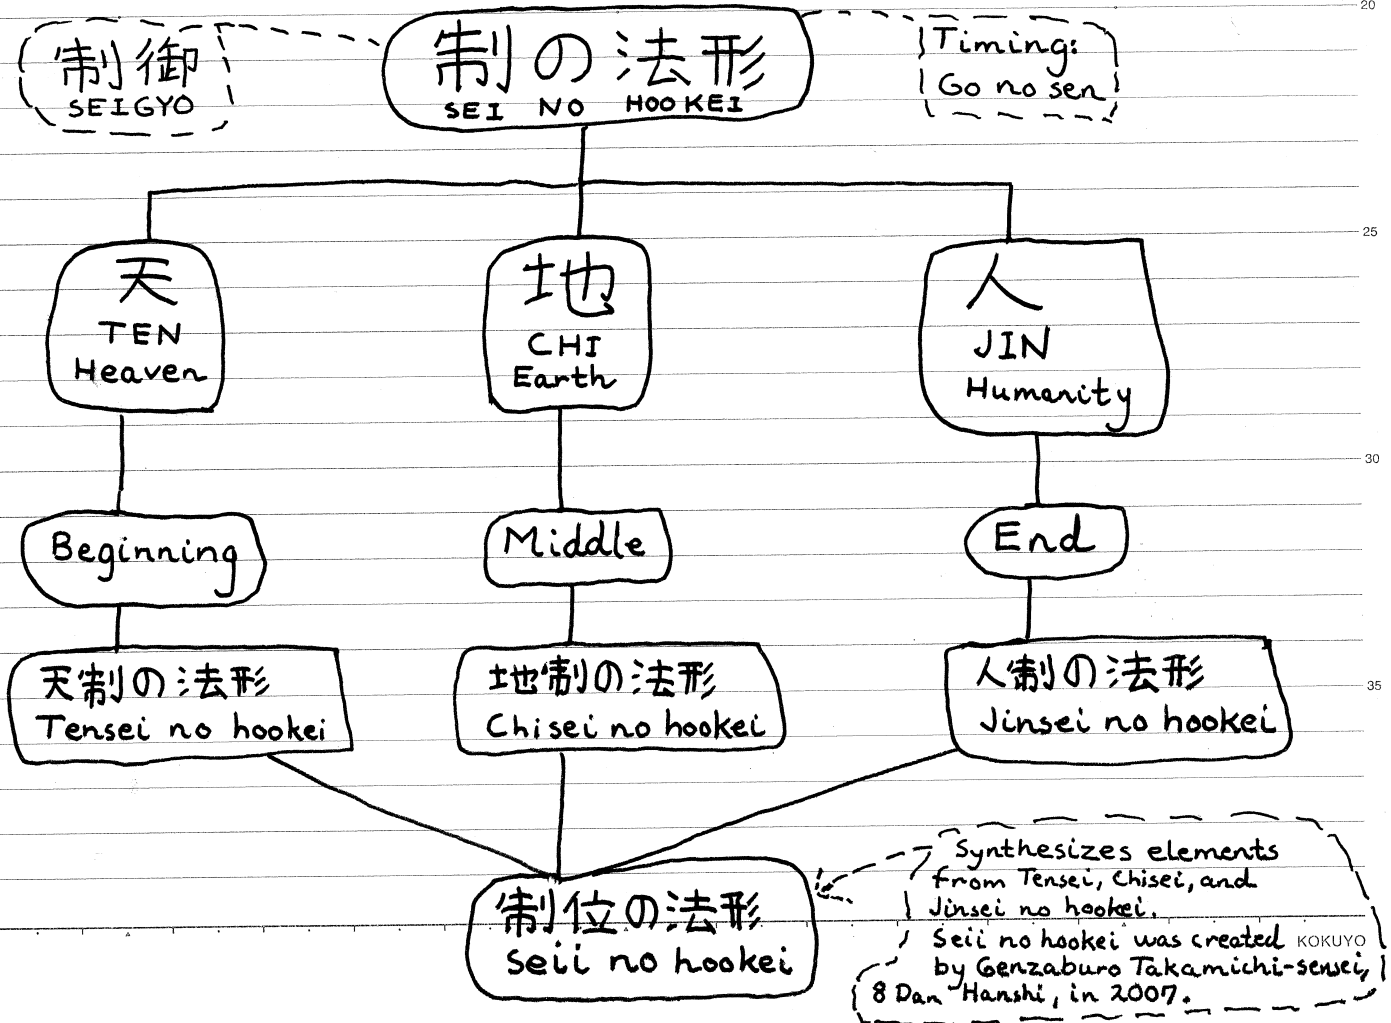 制御
SEIGYO
制の法形
SEI NO HOOKEI
Timing:
Go no sen
20
天
TEN
Heaven
地
CHI
Earth
人
JIN
Humanity
25
30
Beginning
Middle
End
天制の法形
Tensei no hookei
地制の法形
Chisei no hookei
人制の法形
Jinsei no hookei
35
制位の法形
Seii no hookei
Synthesizes elements
from Tensei, Chisei, and
Jinsei no hookei.
Seii no hookei was created
by Genzaburo Takamichi-sensei,
8 Dan Hanshi, in 2007.
KOKUYO